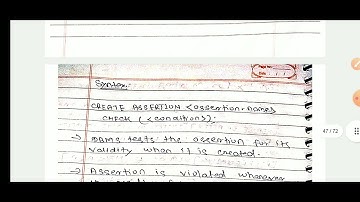 Page No:
Date
Syntax:
CREATE ASSERTION <assertion-name>
CHECK (<condition>);
→ DBMS tests the assertion for its
validity when it is created.
→ Assertion is violated whenever
47 / 72